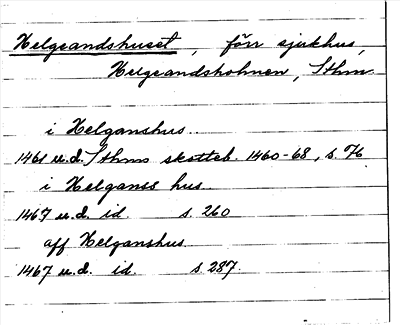 Helgeandshuset, förr sjukhus,
Helgeandsholmen, Sthm.
i Helganshus.
1461 u.d. Sthms skotteb. 1460-68, s. 76
i Helganss hus.
1467 u.d. id. s. 260
aff Helganshus.
1467 u.d. id. s. 287.